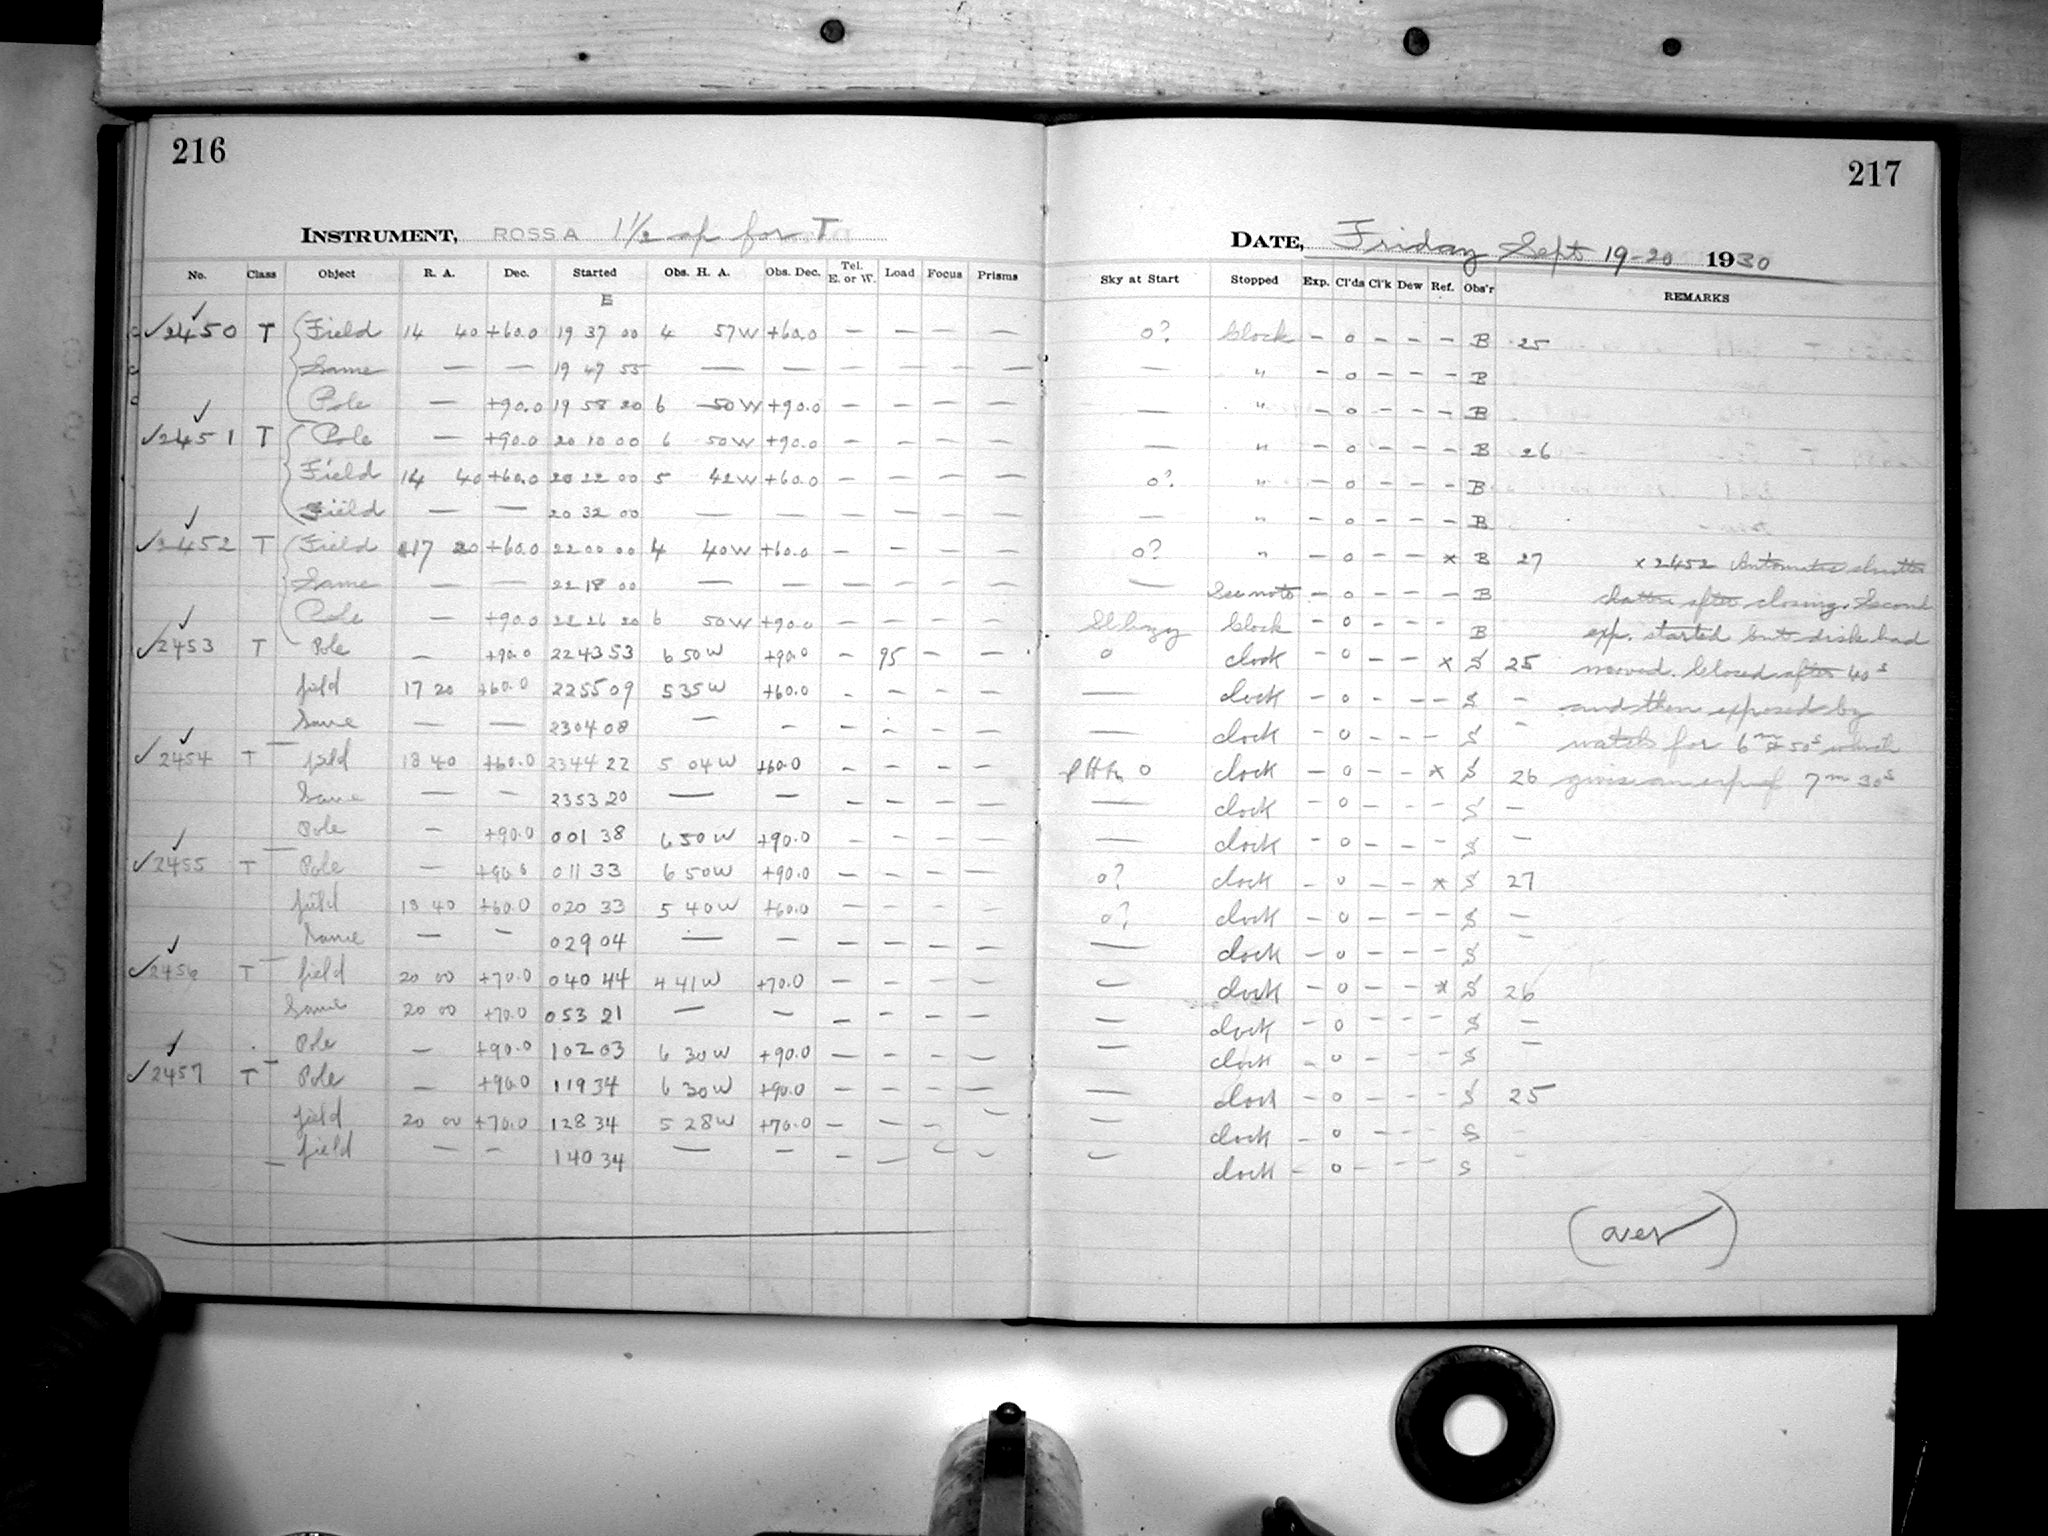 216
INSTRUMENT, ROSS A 1½ ap for T
No. Class Object R. A. Dec. Started Obs. H. A. Obs. Dec. Tel. E. or W. Load Focus Prisms
E
✓2450 T Field 14 40 +60.0 19 37 00 4 57W +60.0 — — — —
Same — — 19 47 55 — — — — — —
Pole — +90.0 19 58 20 6 50W +90.0 — — — —
✓2451 T Pole — +90.0 20 10 00 6 50W +90.0 — — — —
Field 14 40 +60.0 20 22 00 5 42W +60.0 — — — —
Field — — 20 32 00 — — — — — —
✓2452 T Field 17 20 +60.0 22 00 00 4 40W +60.0 — — — —
Same — — 22 18 00 — — — — — —
Pole — +90.0 22 26 20 6 50W +90.0 — — — —
✓2453 T Pole — +90.0 22 43 53 6 50W +90.0 — 95 — —
field 17 20 +60.0 22 55 09 5 35W +60.0 — — — —
Same — — 23 04 08 — — — — — —
✓2454 T field 18 40 +60.0 23 44 22 5 04W +60.0 — — — —
Same — — 23 53 20 — — — — — —
Pole — +90.0 0 01 38 6 50W +90.0 — — — —
✓2455 T Pole — +90.0 0 11 33 6 50W +90.0 — — — —
field 18 40 +60.0 0 20 33 5 40W +60.0 — — — —
Same — — 0 29 04 — — — — — —
✓2456 T field 20 00 +70.0 0 40 44 4 41W +70.0 — — — —
Same 20 00 +70.0 0 53 21 — — — — — —
Pole — +90.0 1 02 03 6 30W +90.0 — — — —
✓2457 T Pole — +90.0 1 19 34 6 30W +90.0 — — — —
field 20 00 +70.0 1 28 34 5 28W +70.0 — — — —
field — — 1 40 34 — — — — — —
217
DATE, Friday Sept 19-20 1930
Sky at Start Stopped Exp. Cl'ds Cl'k Dew Ref. Obs'r REMARKS
0? Clock — 0 — — — B 25
— " — 0 — — — B
— " — 0 — — — B
— " — 0 — — — B 26
0? " — 0 — — — B
— " — 0 — — — B
0? " — 0 — — x B 27 x 2452 Automatic shutter
— See note — 0 — — — B shutter after closing. Second
Sl hazy Clock — 0 — — — B exp. started but disk had
0 clock — 0 — — x S 25 moved. Closed after 40s
— clock — 0 — — — S — and then exposed by
— clock — 0 — — — S — watch for 6m 50s which
0 clock — 0 — — x S 26 gives an exp of 7m 30s
— clock — 0 — — — S —
— clock — 0 — — — S —
0? clock — 0 — — x S 27
0? clock — 0 — — — S —
— clock — 0 — — — S —
— clock — 0 — — x S 26
— clock — 0 — — — S —
— clock — 0 — — — S —
— clock — 0 — — — S 25
— clock — 0 — — — S —
— clock — 0 — — — S —
(over)